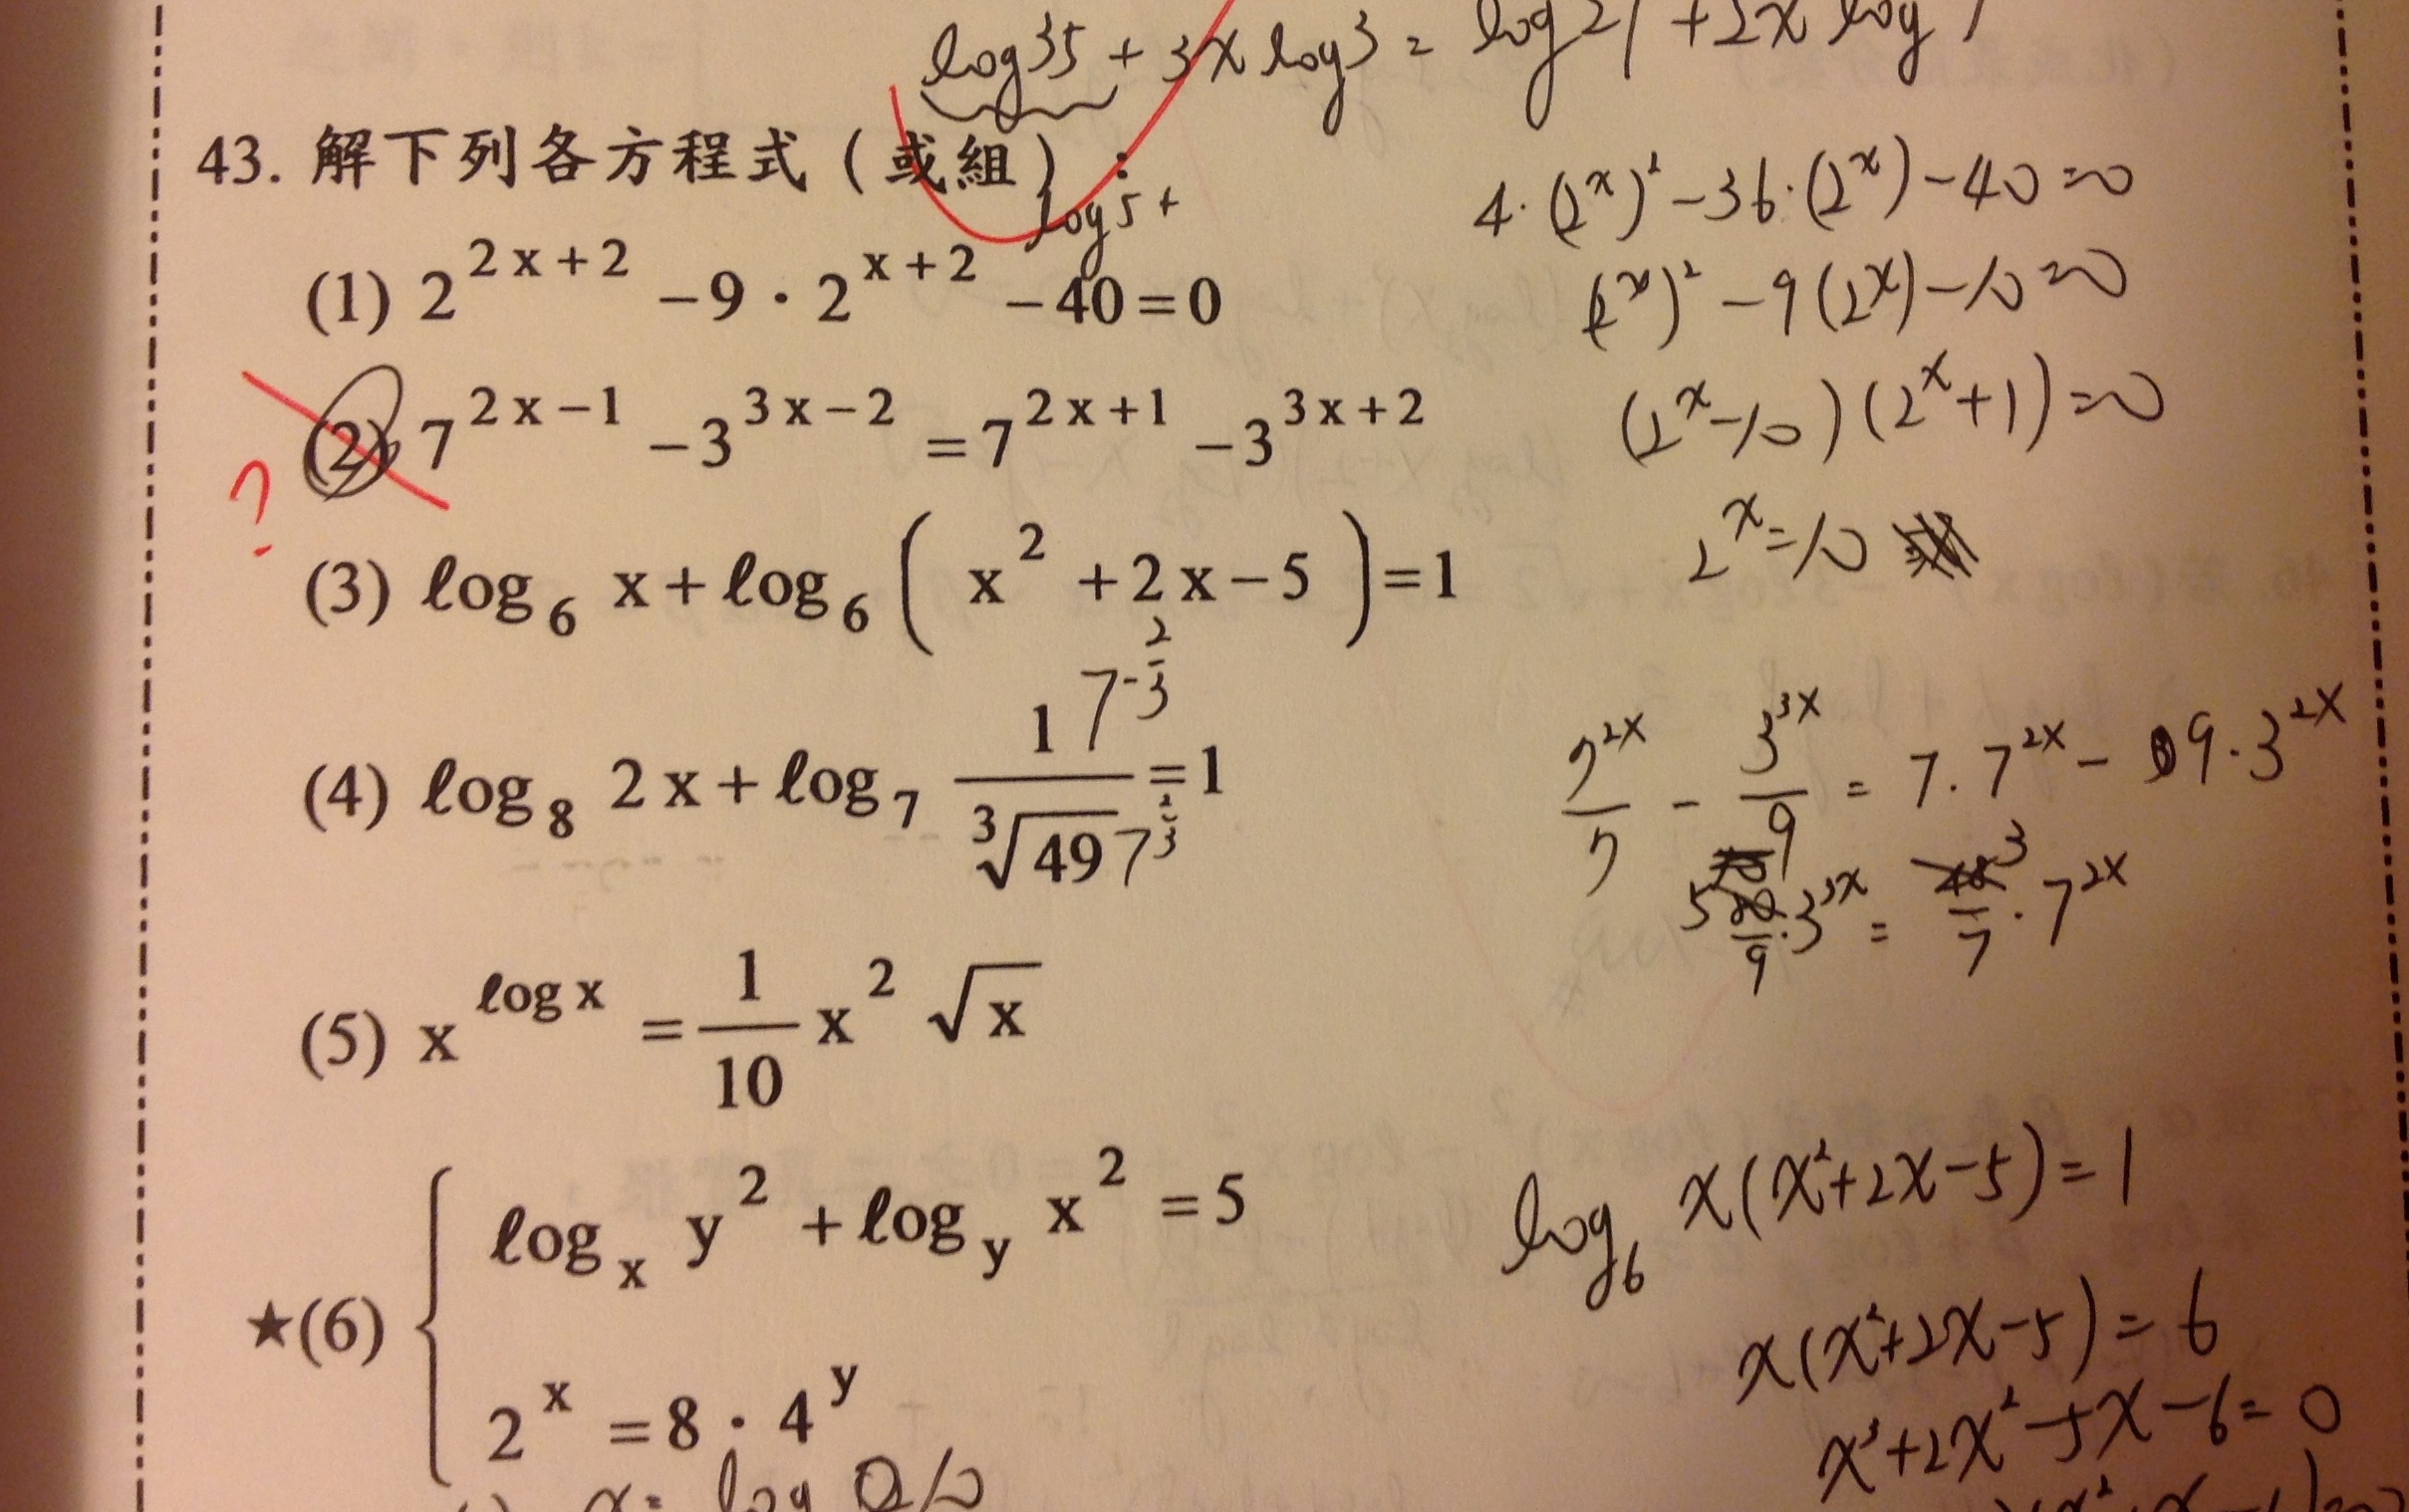 log35 + 3x log3 = log21 + 2x log7
43. 解下列各方程式（或組）：
log5+
(1) 2^{2x+2} − 9 · 2^{x+2} − 40 = 0
4·(2^x)² − 36·(2^x) − 40 = 0
(2^x)² − 9(2^x) − 10 = 0
(2^x − 10)(2^x + 1) = 0
2^x = 10
? (2) 7^{2x−1} − 3^{3x−2} = 7^{2x+1} − 3^{3x+2}
(3) ℓog₆ x + ℓog₆ ( x² + 2x − 5 ) = 1
(4) ℓog₈ 2x + ℓog₇ 1/∛49 = 1
7^{-2/3}
7^{2/3}
7^{2x}/7 − 3^{3x}/9 = 7·7^{2x} − 9·3^{2x}
5/9·3^{3x} = 3/7·7^{2x}
(5) x^{ℓog x} = 1/10 x² √x
★(6) { ℓog_x y² + ℓog_y x² = 5
2^x = 8 · 4^y
log₆ x(x²+2x−5) = 1
x(x²+2x−5) = 6
x³+2x²−5x−6 = 0
x = log 10